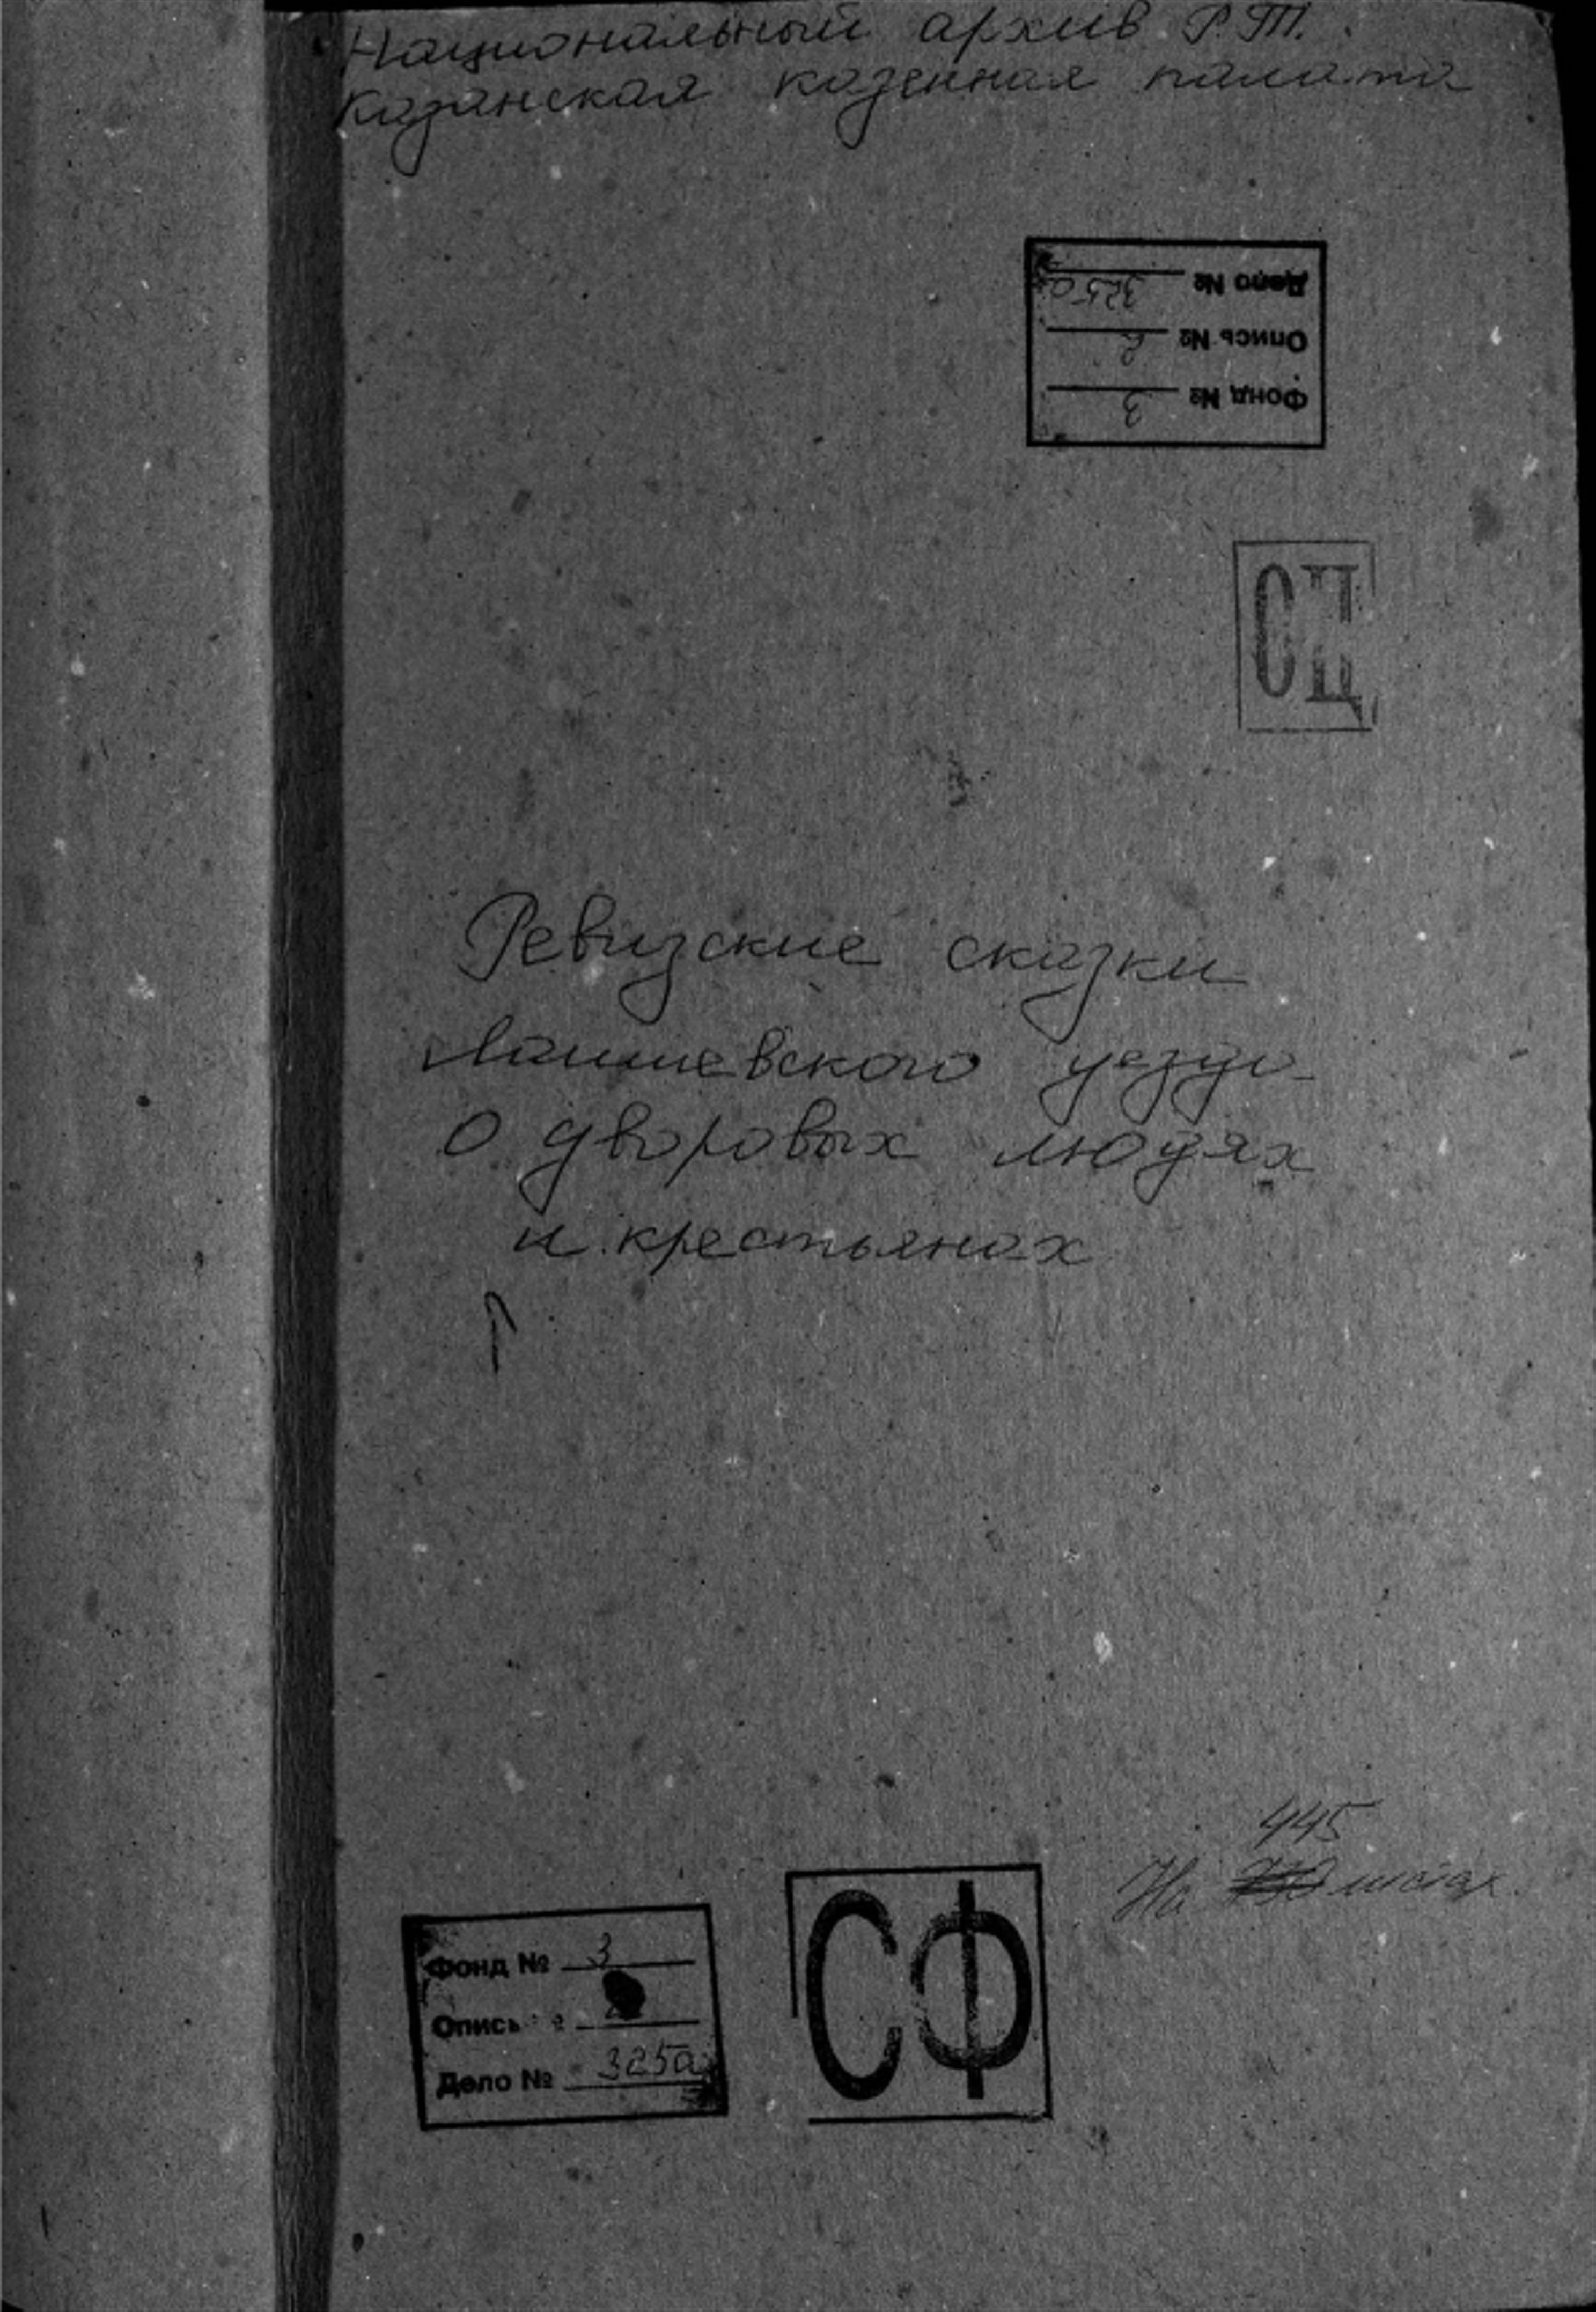 Национальный архив Р.Т.
Казанская казенная палата
Дело № 325а
Опись № 2
Фонд № 3
СЦ
Ревизские сказки
Лаишевского уезда
о дворовых людях
и крестьянах
445
На листах
Фонд № 3
Опись
Дело № 325а
СФ